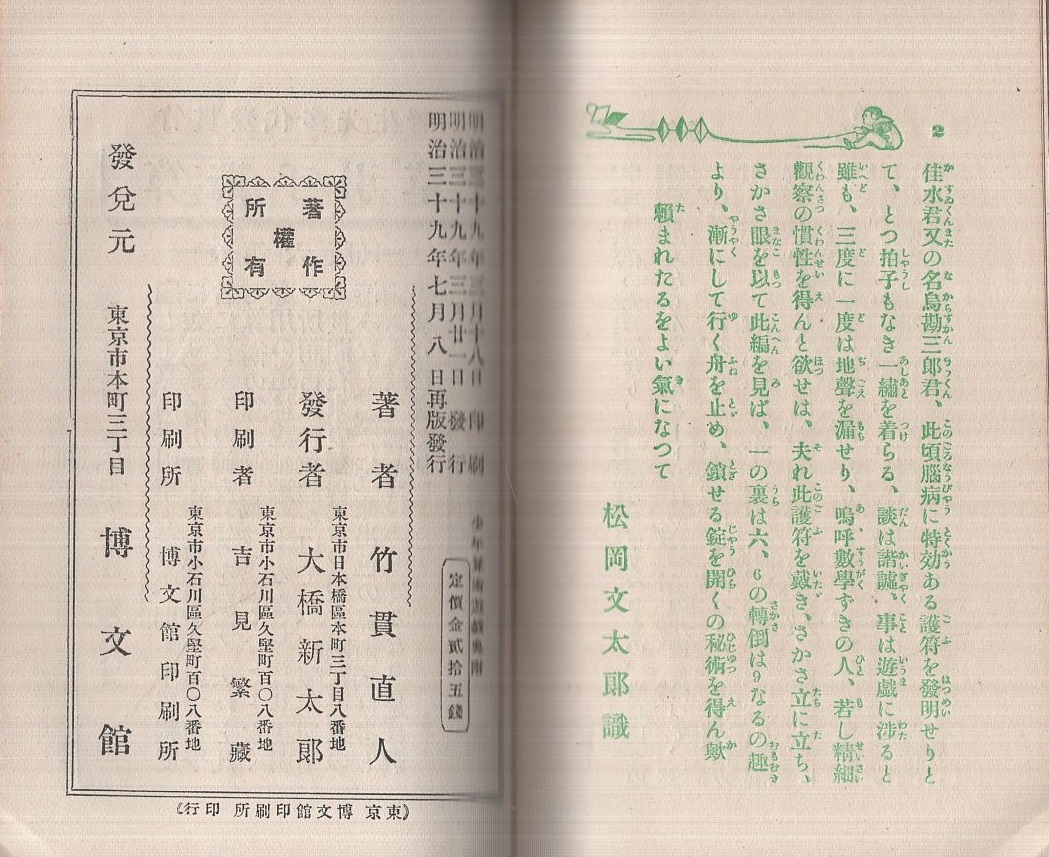 2
佳水君又の名烏勘三郎君、此頃腦病に特効ある護符を發明せりと
て、とつ拍子もなき一繡を着らる、談は諧謔、事は遊戯に涉ると
雖も、三度に一度は地聲を漏せり、嗚呼數學ずきの人、若し精細
觀察の慣性を得んと欲せは、夫れ此護符を戴き、さかさ立に立ち、
さかさ眼を以て此編を見ば、一の裏は六、6の轉倒は9なるの趣
より、漸にして行く舟を止め、鎖せる錠を開くの秘術を得ん歟
賴まれたるをよい氣になつて
松岡文太郎識
明治三十九年三月十八日印刷
明治三十九年三月廿一日發行
明治三十九年七月八日再版發行
定價金貳拾五錢
著作權所有
著者 竹貫直人
東京市日本橋區本町三丁目八番地
發行者 大橋新太郎
東京市小石川區久堅町百〇八番地
印刷者 吉見繁藏
東京市小石川區久堅町百〇八番地
印刷所 博文館印刷所
發兌元 東京市本町三丁目 博文館
《東京 博文館印刷所 印行》